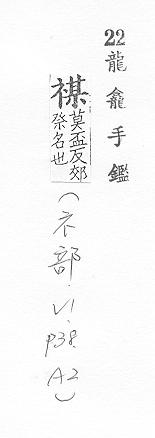 22龍龕手鑑
禖莫盃反郊
祭名也
(衣部.V1.P38.A2)